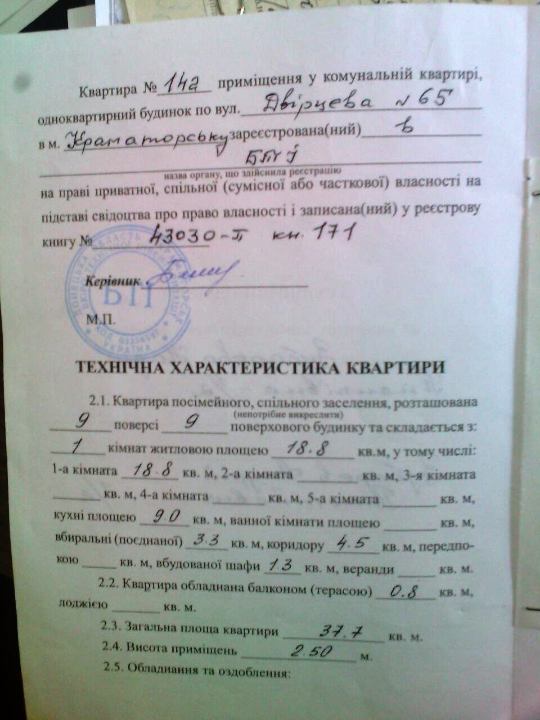 Квартира № 142 приміщення у комунальній квартирі,
одноквартирний будинок по вул. Двірцева № 65
в м. Краматорську зареєстрована(ний) в
БТІ
назва органу, що здійснила реєстрацію
на праві приватної, спільної (сумісної або часткової) власності на
підставі свідоцтва про право власності і записана(ний) у реєстрову
книгу № 43030-п кн. 171
Керівник
БТІ
М.П.
УКРАЇНА
ТЕХНІЧНА ХАРАКТЕРИСТИКА КВАРТИРИ
2.1. Квартира посімейного, спільного заселення, розташована
(непотрібне викреслити)
9 поверсі 9 поверхового будинку та складається з:
1 кімнат житловою площею 18.8 кв.м, у тому числі:
1-а кімната 18.8 кв. м, 2-а кімната кв. м, 3-я кімната
кв. м, 4-а кімната кв. м, 5-а кімната кв. м,
кухні площею 9.0 кв. м, ванної кімнати площею кв. м,
вбиральні (поєднаної) 3.3 кв. м, коридору 4.5 кв. м, передпо-
кою кв. м, вбудованої шафи 1.3 кв. м, веранди кв. м.
2.2. Квартира обладнана балконом (терасою) 0.8 кв. м,
лоджією кв. м.
2.3. Загальна площа квартири 37.7 кв. м.
2.4. Висота приміщень 2.50 м.
2.5. Обладнання та оздоблення: